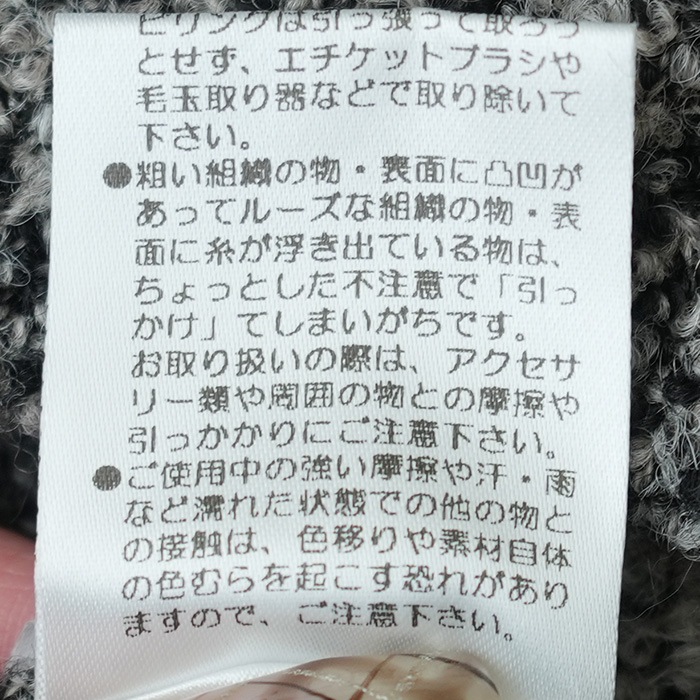 ピリングは引っ張って取ろう
とせず、エチケットブラシや
毛玉取り器などで取り除いて
下さい。
●粗い組織の物・表面に凸凹が
あってルーズな組織の物・表
面に糸が浮き出ている物は、
ちょっとした不注意で「引っ
かけ」てしまいがちです。
お取り扱いの際は、アクセサ
リー類や周囲の物との摩擦や
引っかかりにご注意下さい。
●ご使用中の強い摩擦や汗・雨
など濡れた状態での他の物と
の接触は、色移りや素材自体
の色むらを起こす恐れがあり
ますので、ご注意下さい。